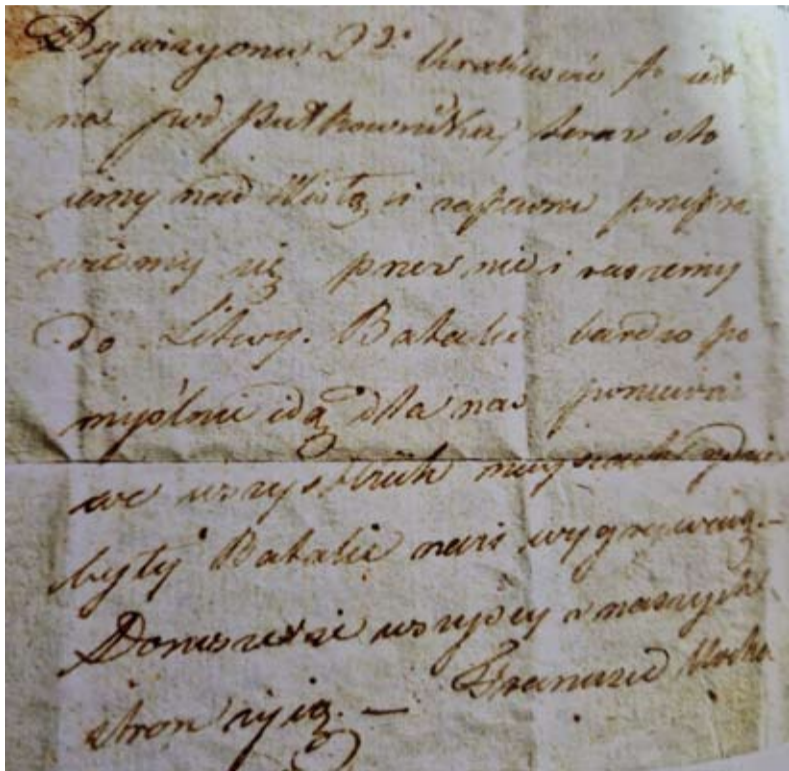 Dywizyonu 2go. Uraliwcie po ied
na pod Pułkownika, teraz sto
iemy nad Wisłą i zapewne przepra
wiemy się przez nie i ruszemy
do Litwy. Batalie bardzo po
myślnie idą dla nas ponieważ
we wszystkich mieyscach gdzie
były Batalie nasi wygrywaią. —
Donieście wszyscy z naszych
stron żyią. — Franciszek